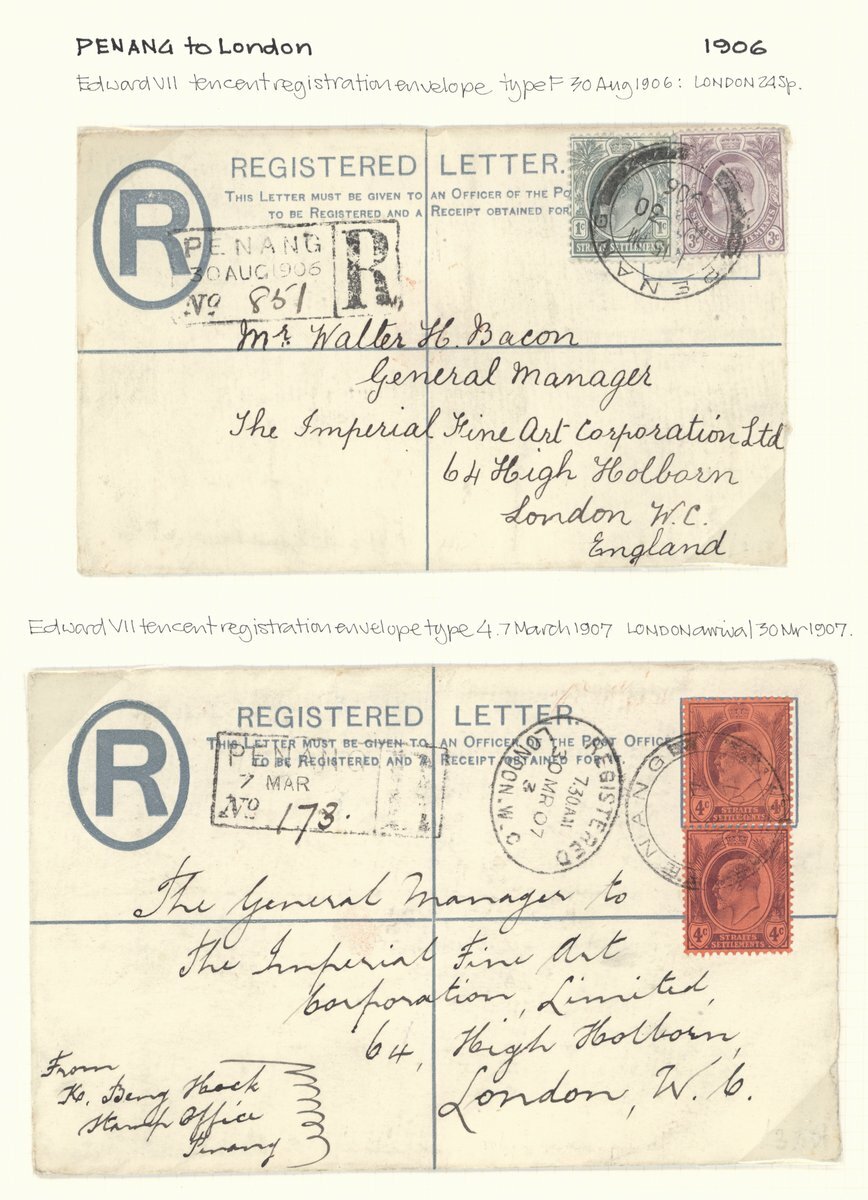 PENANG to London 1906
Edward VII ten cent registration envelope type F 30 Aug 1906: LONDON 24 Sp.
REGISTERED LETTER.
THIS LETTER MUST BE GIVEN TO AN OFFICER OF THE PO
TO BE REGISTERED AND A RECEIPT OBTAINED FOR
R
PENANG
30 AUG 1906
No 851
R
1c 1c
STRAITS SETTLEMENTS
3c 3c
PENANG
30
Mr. Walter H. Bacon
General Manager
The Imperial Fine Art Corporation Ltd
64 High Holborn
London W.C.
England
Edward VII ten cent registration envelope type 4. 7 March 1907 LONDON arrival 30 Mr 1907.
REGISTERED LETTER.
THIS LETTER MUST BE GIVEN TO AN OFFICER OF THE POST OFFICE
TO BE REGISTERED AND A RECEIPT OBTAINED FOR
R
PENANG
7 MAR
No 173.
REGISTERED
7.30 AM
30 MR 07
3
LONDON. W. C
PENANG
4c 4c
STRAITS
SETTLEMENTS
4c 4c
STRAITS
SETTLEMENTS
The General Manager to
The Imperial Fine Art
Corporation, Limited,
64, High Holborn,
London, W. C.
From
K. Beng Hock
Stamp Office
Penang